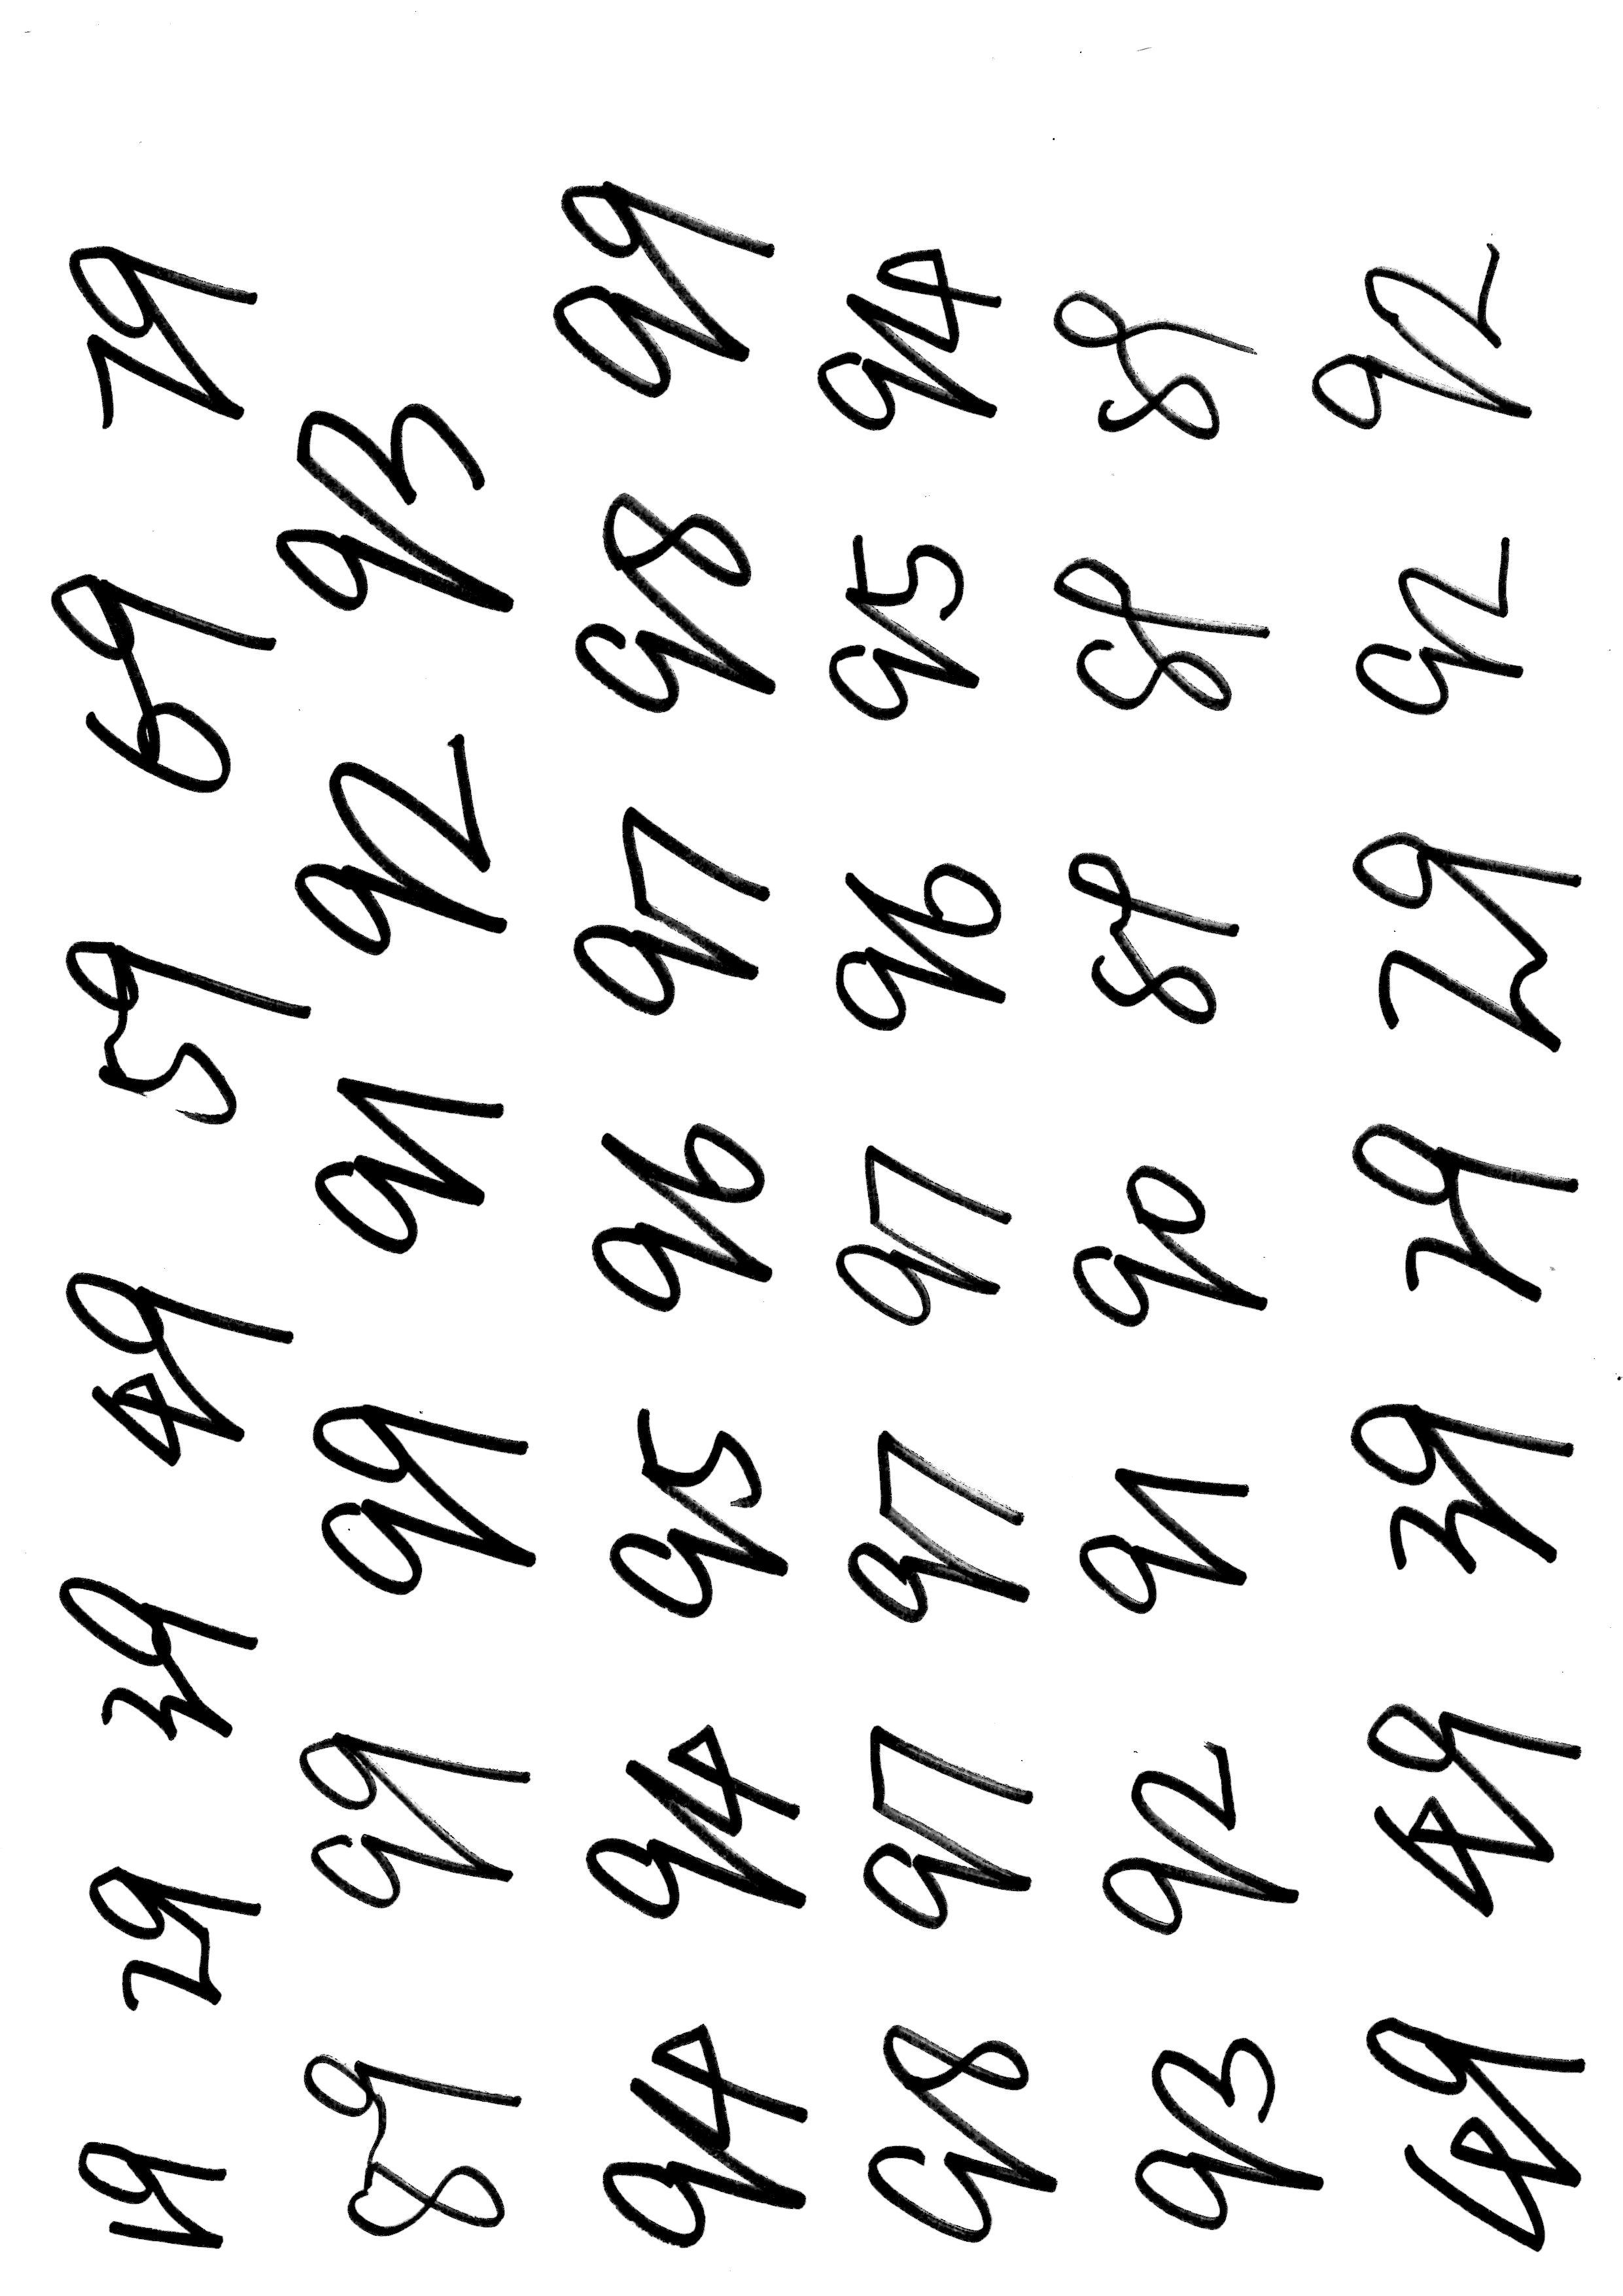 19 29 39 49 59 69 79
89 99 99 91 92 93
94 94 95 96 97 98 99
98 97 97 97 96 95 94
93 92 91 90 89 89 89
49 49 39 29 29 92 92